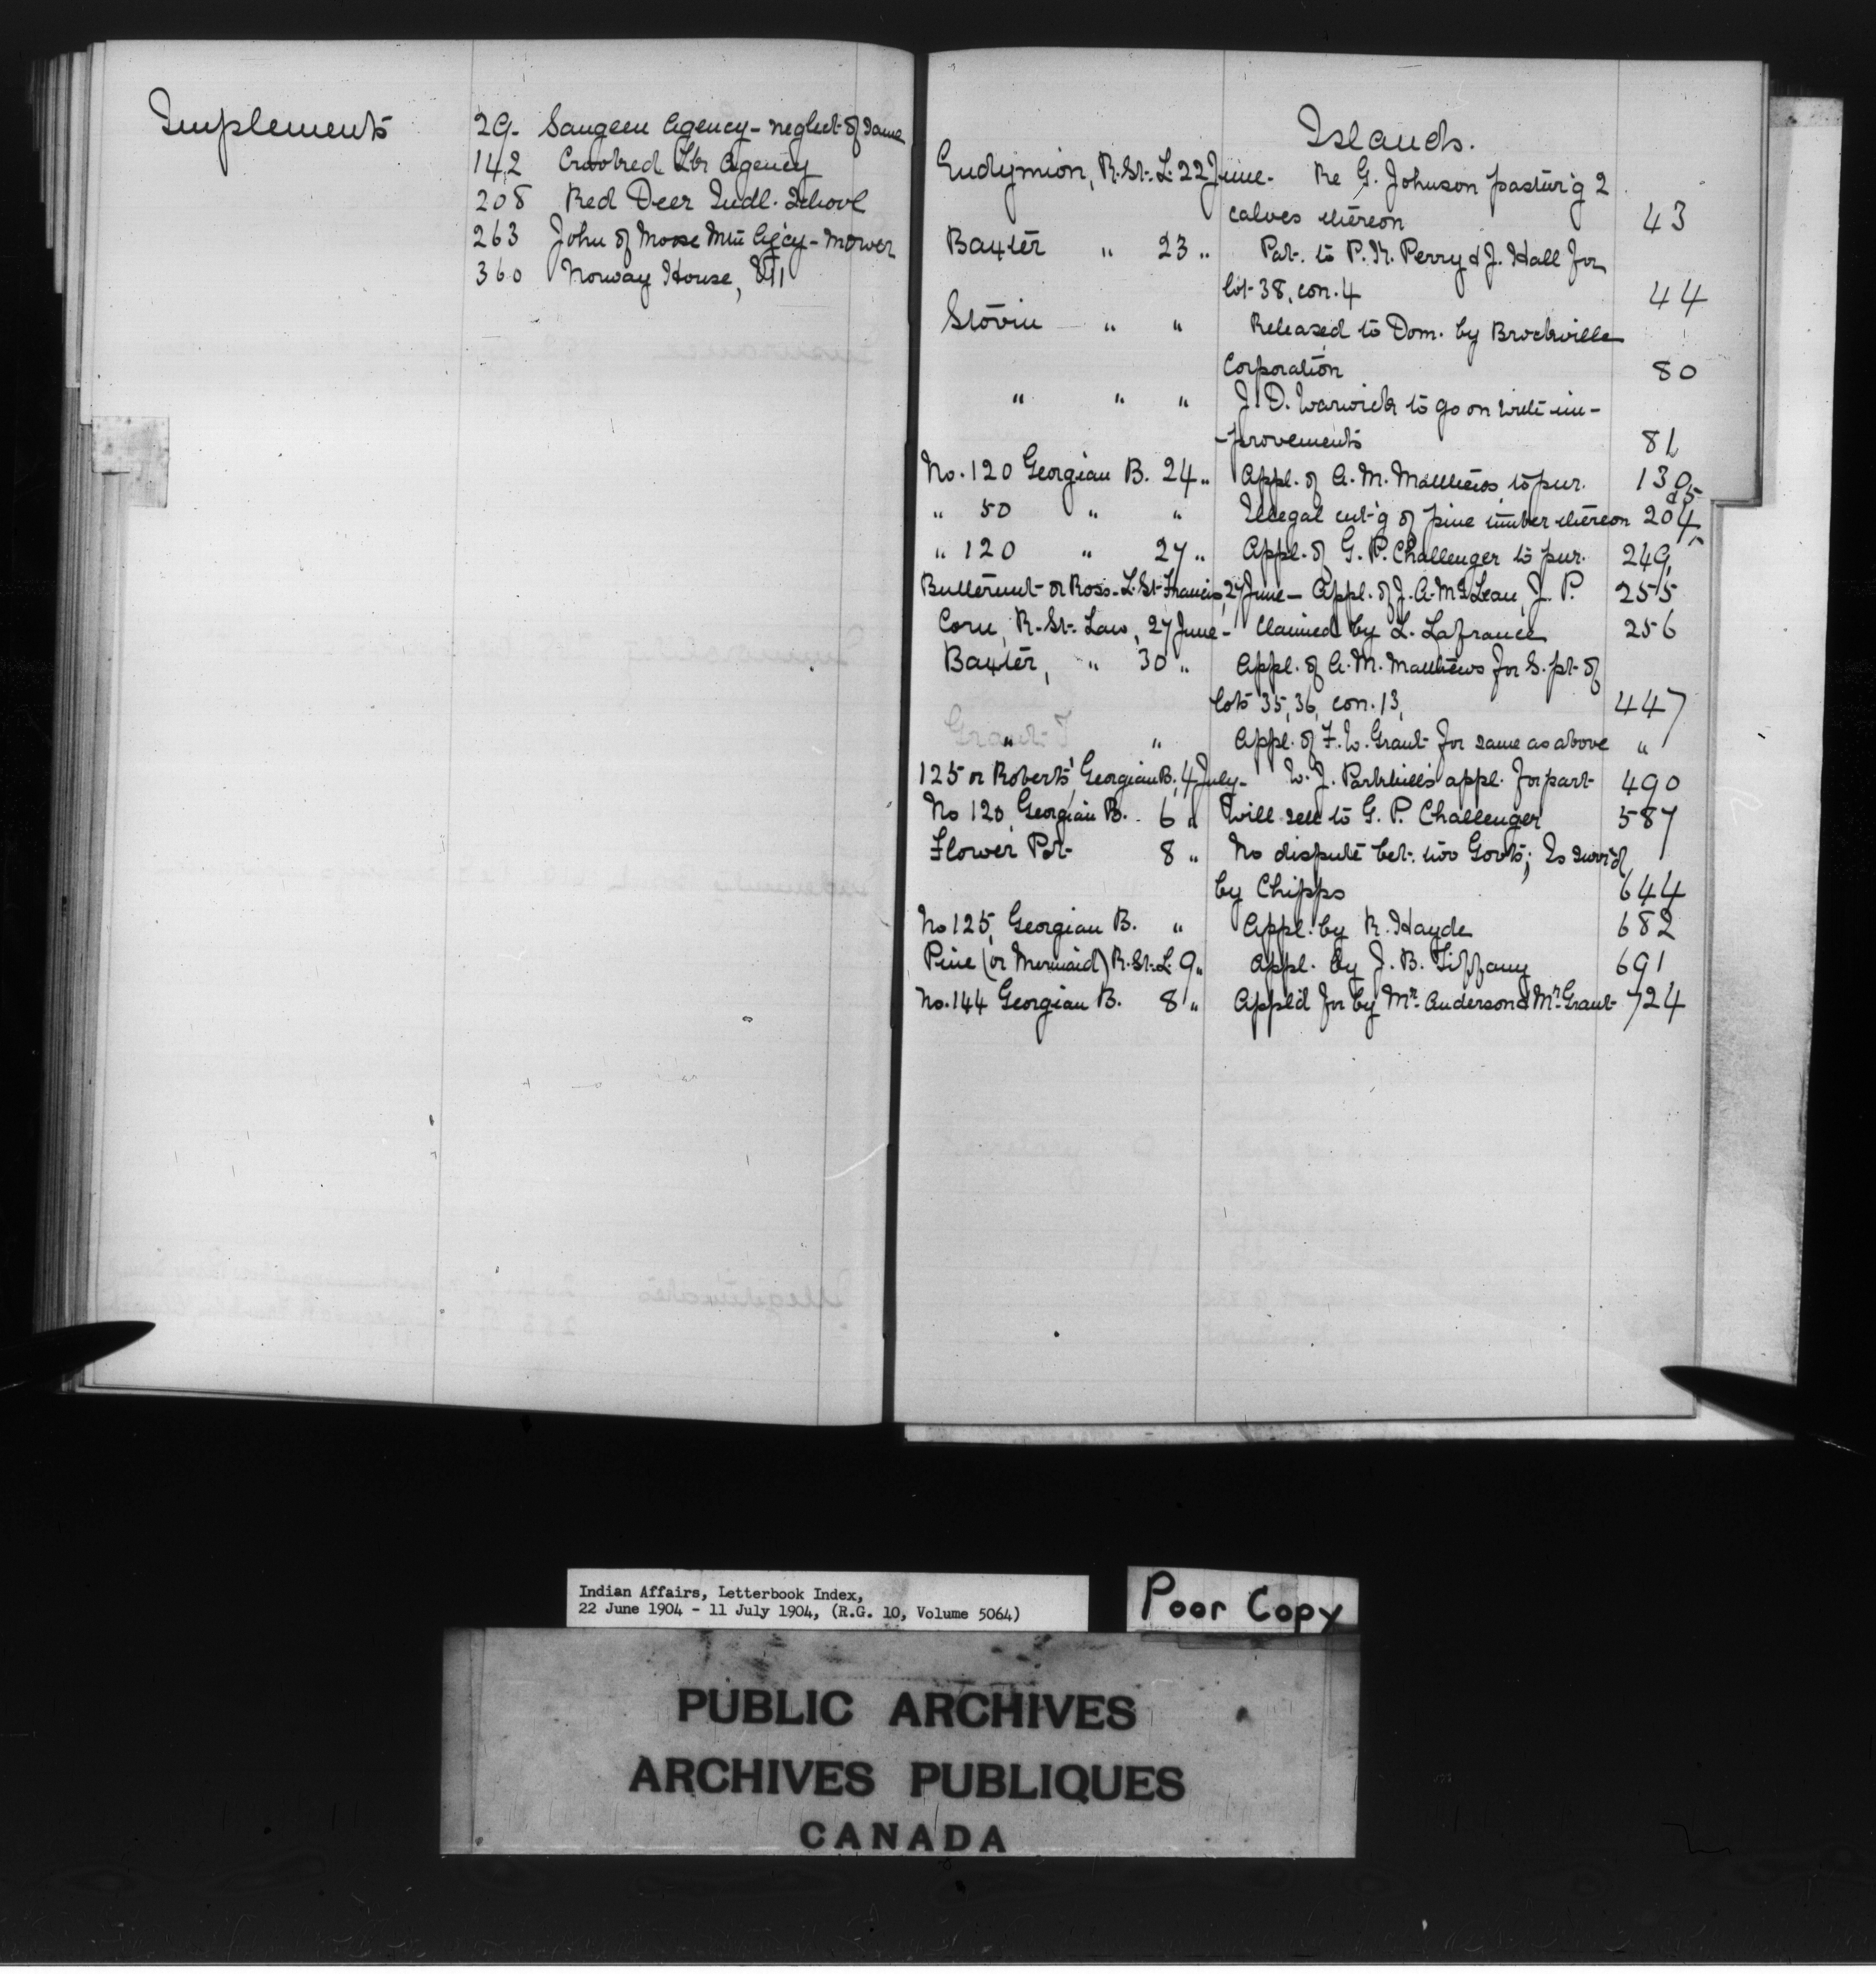 Implements
29 Saugeen Agency - neglect of same
142 Crooked Lk Agency
208 Red Deer Indl. School
263 John of Moose Mtn Ag'cy - mower
360 Norway House,
Islands.
Endymion, R. St. L. 22 June - Re G. Johnson pastur'g 2
calves thereon 43
Baxter " 23 " Pat. to P. K. Perry & J. Hall for
lot 38, con. 4 44
Stovin " " Released to Dom. by Brockville
Corporation 80
" " " J. D. Warwick to go on with im-
-provements 81
No. 120 Georgian B. 24 " Appl. of A. M. Matthews to pur. 130
" 50 " " Illegal cut'g of pine timber thereon 204
" 120 " 27 " Appl. of G. P. Challenger to pur. 249
Butternut or Ross - L. St. Francis, 27 June - Appl. of J. A. McLean, J. P. 255
Corn, R. St. Law, 27 June - Claimed by L. Lafrance 256
Baxter, " 30 " Appl. of A. M. Matthews for S. pt. of
lots 35, 36, con. 13, 447
" " Appl. of F. W. Grant for same as above "
125 or Roberts', Georgian B., 4 July - W. J. Parkhill's appl. for part 490
No 120, Georgian B. 6 " Will sell to G. P. Challenger 587
Flower Pot 8 " No dispute bet. two Govts; Is surv'd
by Chipps 644
No 125, Georgian B. " Appl. by R. Hayde 682
Pine (or Mermaid) R. St. L. 9 " Appl. by J. B. Tiffany 691
No. 144 Georgian B. 8 " Appl'd for by Mr. Anderson & Mr. Grant 724
Indian Affairs, Letterbook Index,
22 June 1904 - 11 July 1904, (R.G. 10, Volume 5064)
Poor Copy
PUBLIC ARCHIVES
ARCHIVES PUBLIQUES
CANADA